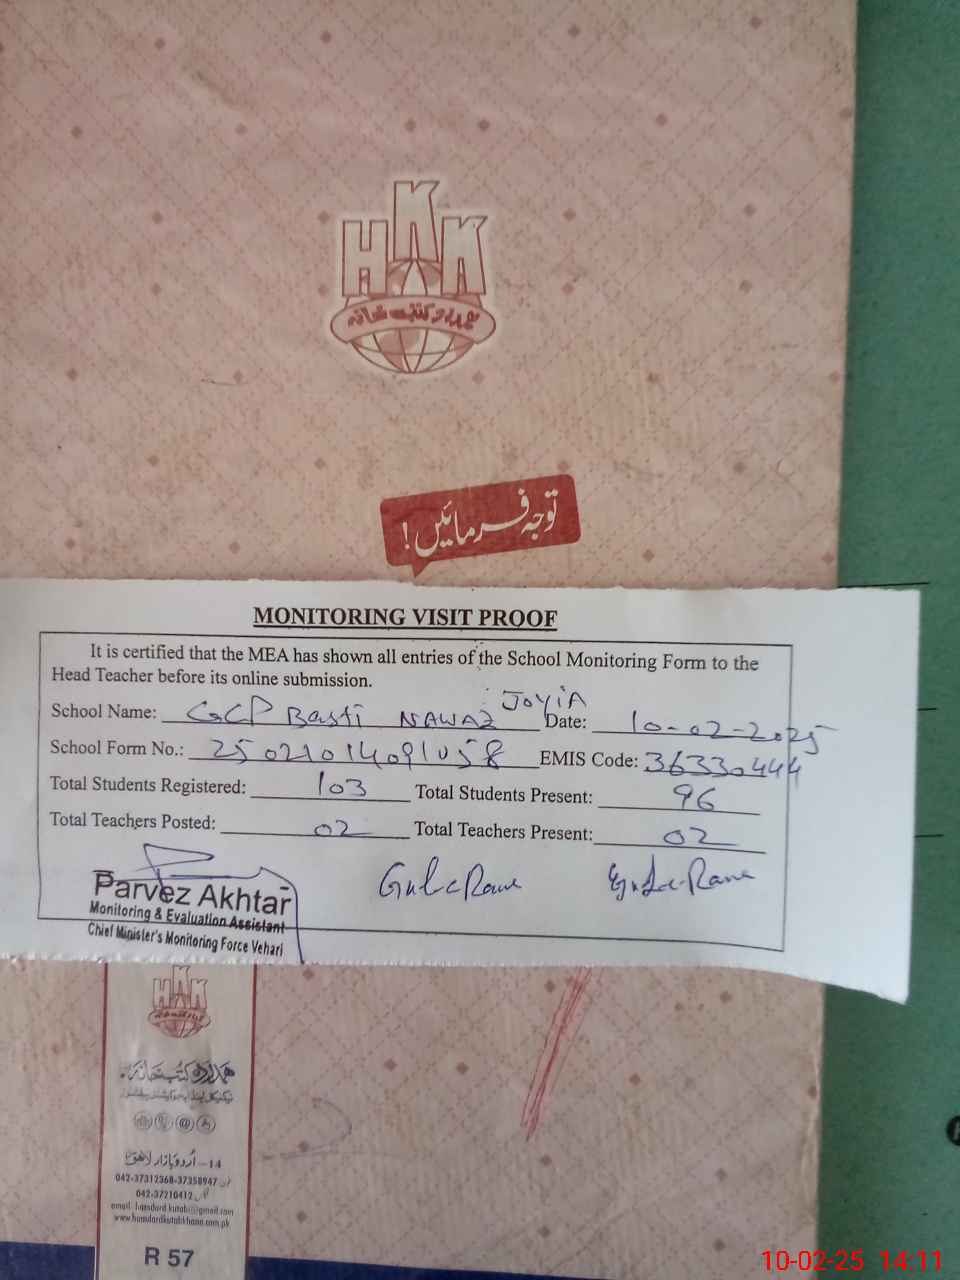 HKK
ہمدرد کتب خانہ
توجہ فرمائیں!
MONITORING VISIT PROOF
It is certified that the MEA has shown all entries of the School Monitoring Form to the
Head Teacher before its online submission.
School Name: GCP Basti NAWAZ JOYIA Date: 10-02-2025
School Form No.: 25021014091058 EMIS Code: 36330444
Total Students Registered: 103 Total Students Present: 96
Total Teachers Posted: 02 Total Teachers Present: 02
Parvez Akhtar
Monitoring & Evaluation Assistant
Chief Minister's Monitoring Force Vehari
HKK
ہمدرد کتب خانہ
14-اُردو بازار لاھور
042-37312368-37358947
042-37210412
email: hamdard.kutab@gmail.com
www.hamdardkutabkhana.com.pk
R 57
10-02-25 14:11